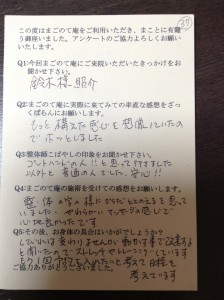 37
この度はまごのて庵をご利用いただき、まことに有難う御座いました。アンケートのご協力よろしくお願いいたします。
Q1:今回まごのて庵にご来院いただいたきっかけをお聞かせ下さい。
鈴木様 紹介
Q2:まごのて庵に実際に来てみての率直な感想をざっくばらんにお願いします。
もっと構えた感じを想像していたので ホッとしました
Q3:整体師こばやしの印象をお聞かせ下さい。
以外と普通の人でした。安心!!
Q4:まごのて庵の施術を受けての感想をお願いします。
整体の
していました。やわらかいマッサージの感じで
心地良かったです
Q5:その後、お身体の具合はいかがでしょうか?
しびれは変わりませんが 動かす事で改善する
と聞いたので ストレッチやトレーニングしています
もう1回予約を入れたいと考え
考えています
ご協力ありがとうございました。